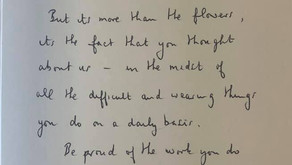 But its more than the flowers,
its the fact that you thought
about us – in the midst of
all the difficult and wearing things
you do on a daily basis.
Be proud of the work you do